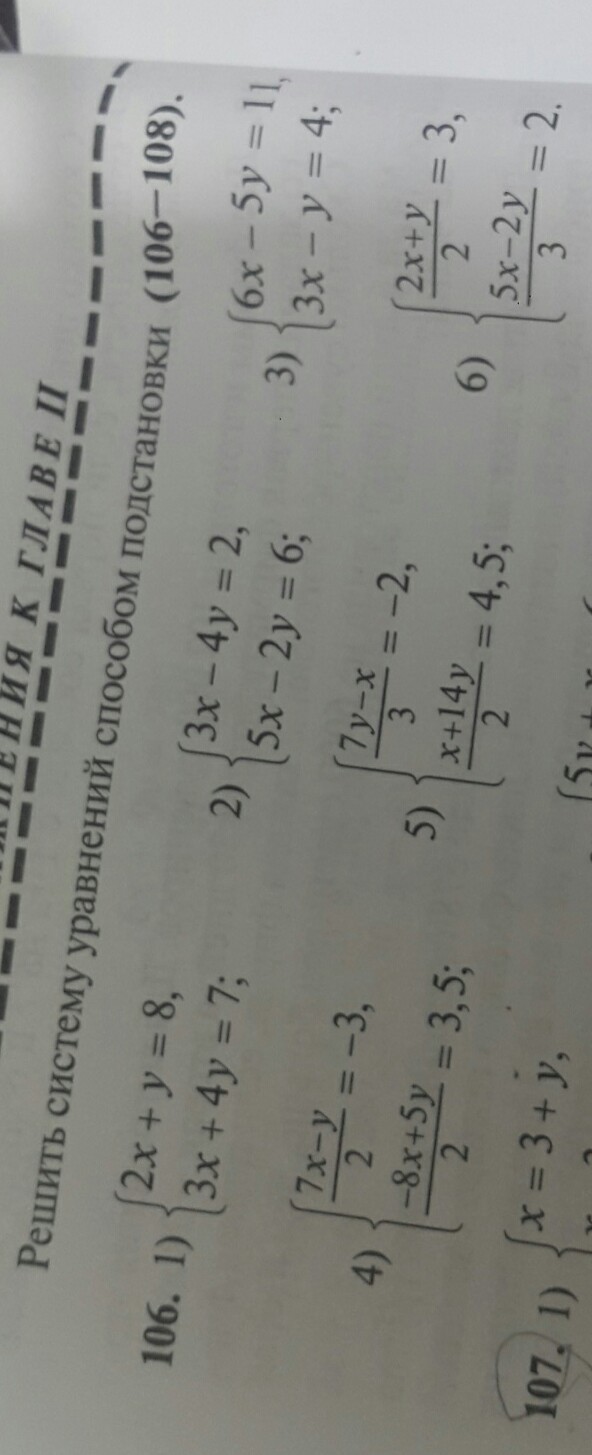 К ГЛАВЕ II
Решить систему уравнений способом подстановки (106–108).
106. 1) {2x + y = 8,
3x + 4y = 7;
2) {3x – 4y = 2,
5x – 2y = 6;
3) {6x – 5y = 11,
3x – y = 4;
4) {(7x–y)/2 = –3,
(–8x+5y)/2 = 3,5;
5) {(7y–x)/3 = –2,
(x+14y)/2 = 4,5;
6) {(2x+y)/2 = 3,
(5x–2y)/3 = 2.
107. 1) {x = 3 + y,